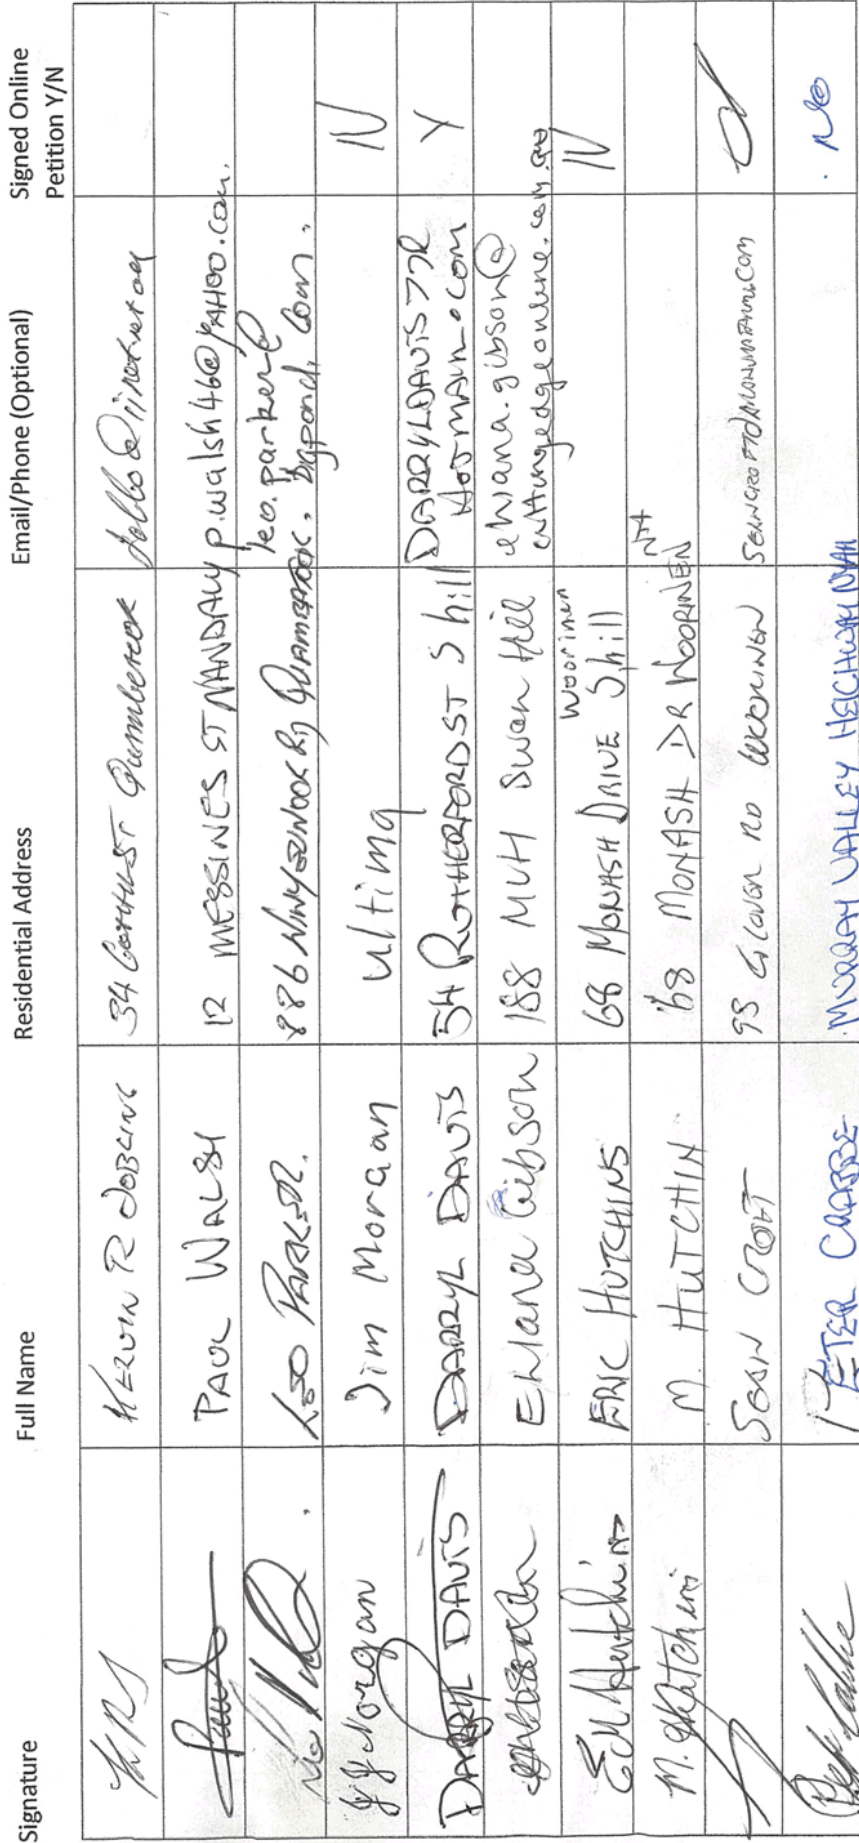 Signature Full Name Residential Address Email/Phone (Optional) Signed Online Petition Y/N
KRJ KERVIN R JOBLING 34 Quambatook
PAUL WALSH 12 MESSINES ST NANDALY p.walsh46@YAHOO.com.
LEO PARKER. 886 RD QUAMBATOOK, leo.parker6
Bigpond. com.
JJ Morgan Jim Morgan Ultima N
DARRYL DAVIS DARRYL DAVIS 54 RUTHERFORD ST S hill DARRYLDAVIS77R Y
HOTMAIL.COM
Ehlana Gibson 188 MVH Swan Hill ehlana.gibson@
cuttingedgeonline.com.au
E M Hutchins ERIC HUTCHINS 68 MONASH DRIVE Woorinen S hill N
M. Hutchins M. HUTCHIN 68 MONASH DR WOORINEN N-A
SEAN CROFT 95 GLOVER RD WOORINEN
PETER CRABBE MURRAY VALLEY HEIGHWAY NYAH No